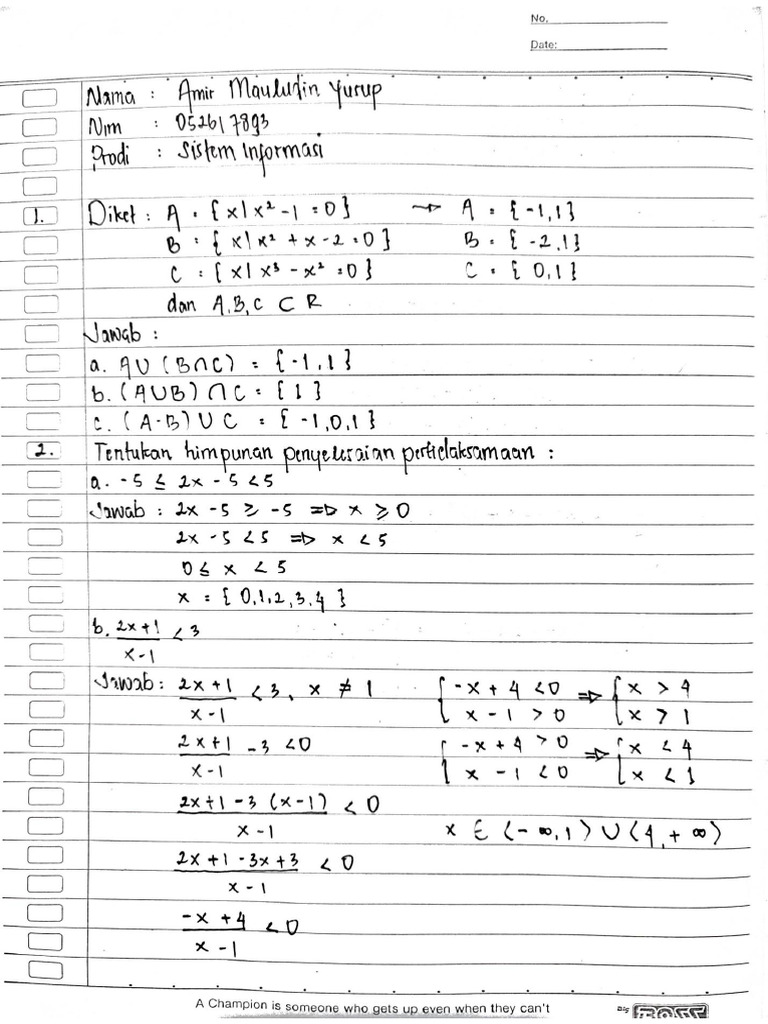 No.
Date:
Nama : Amir Mauludin Yusup
Nim : 052617893
Prodi : Sistem Informasi
1. Diket : A = {x|x² - 1 = 0} → A = {-1,1}
B = {x|x² + x - 2 = 0} B = {-2,1}
C = {x|x³ - x² = 0} C = {0,1}
dan A,B,C ⊂ R
Jawab :
a. A∪(B∩C) = {-1,1}
b. (A∪B)∩C = {1}
c. (A-B)∪C = {-1,0,1}
2. Tentukan himpunan penyelesaian pertidaksamaan :
a. -5 ≤ 2x - 5 < 5
Jawab : 2x - 5 ≥ -5 ⇒ x ≥ 0
2x - 5 < 5 ⇒ x < 5
0 ≤ x < 5
x = {0,1,2,3,4}
b. (2x+1)/(x-1) < 3
Jawab : (2x+1)/(x-1) < 3, x ≠ 1
(2x+1)/(x-1) - 3 < 0
(2x+1-3(x-1))/(x-1) < 0
(2x+1-3x+3)/(x-1) < 0
(-x+4)/(x-1) < 0
{-x + 4 < 0 ⇒ {x > 4
{x - 1 > 0 {x > 1
{-x + 4 > 0 ⇒ {x < 4
{x - 1 < 0 {x < 1
x ∈ (-∞,1) ∪ (4,+∞)
A Champion is someone who gets up even when they can't
BIG BOSS